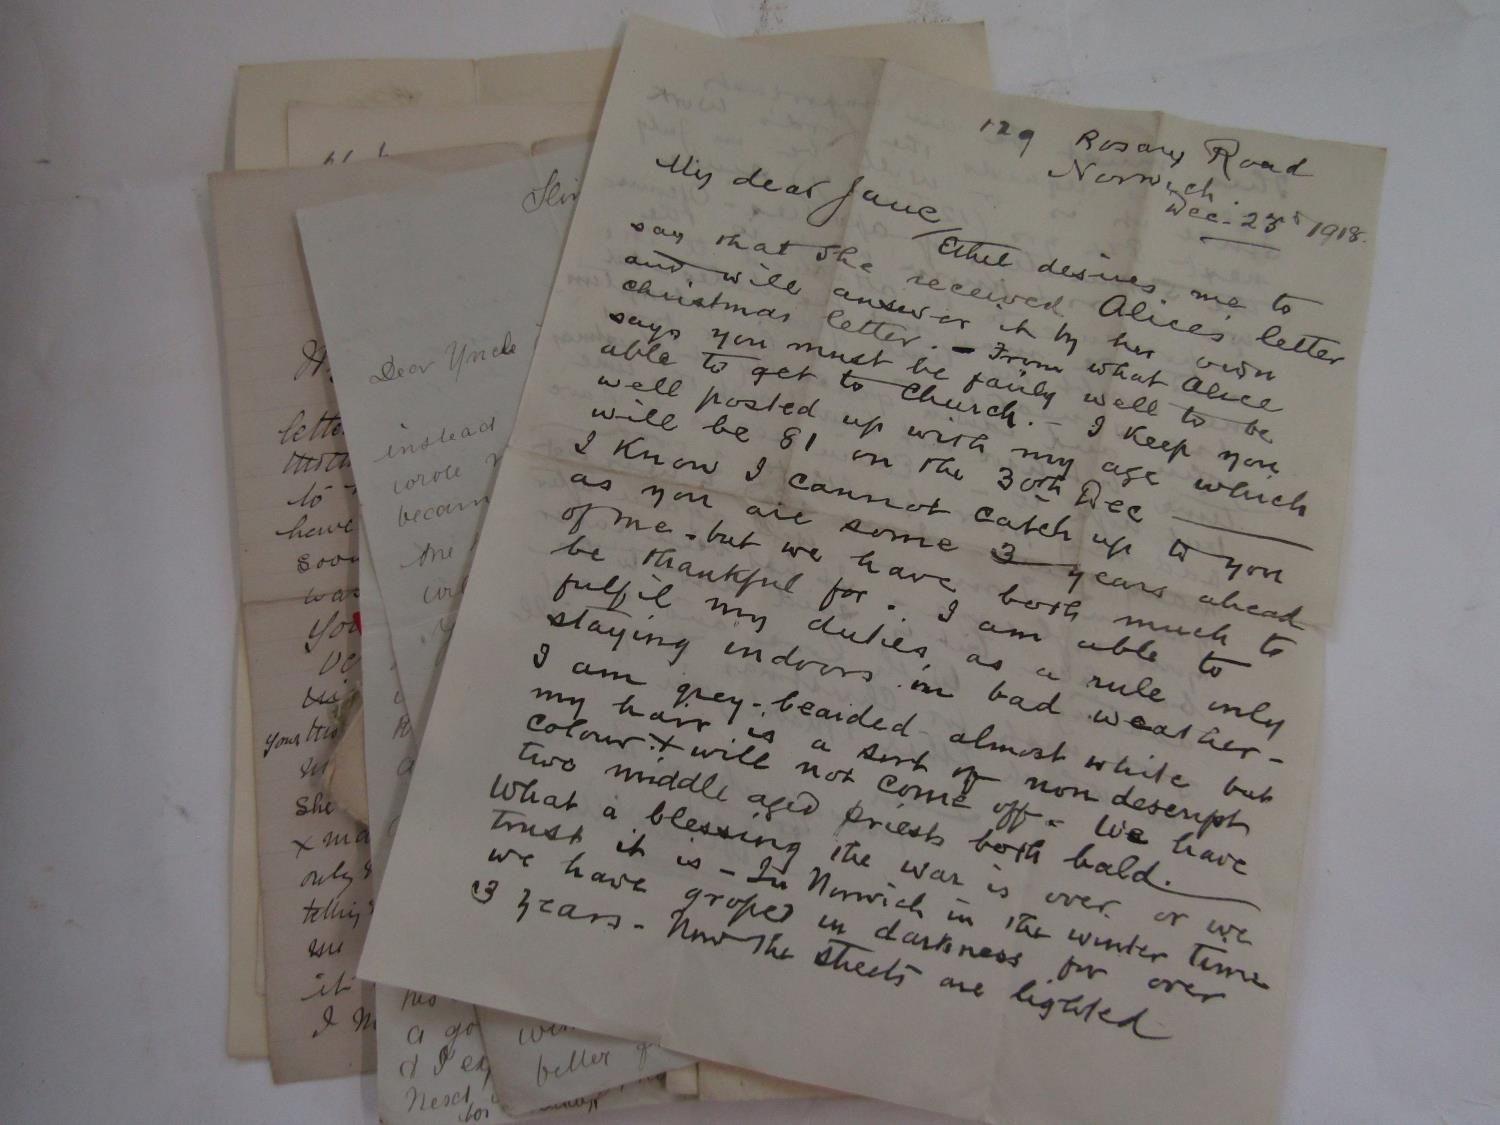 129 Rosary Road
Norwich.
Dec. 23rd 1918.
My dear Jane/
Ethel desires me to
say that she received Alice's letter
and will answer it by her own
christmas letter. - From what Alice
says you must be fairly well to be
able to get to church. - I keep you
well posted up with my age which
will be 81 on the 30th Dec
I know I cannot catch up to you
as you are some 3 years ahead
of me - but we have both much to
be thankful for. I am able to
fulfil my duties, as a rule only
staying indoors in bad weather -
I am grey-bearded almost white but
my hair is a sort of non descript
colour & will not come off - We have
two middle aged priests both bald.
What a blessing the war is over or we
trust it is - In Norwich in the winter time
we have groped in darkness for over
3 years - Now the streets are lighted
Dear Uncle
instead
wrote
becam
the
letter
to
have
soon
was
you
yours
she
only
it
I
a go
better
Next
for